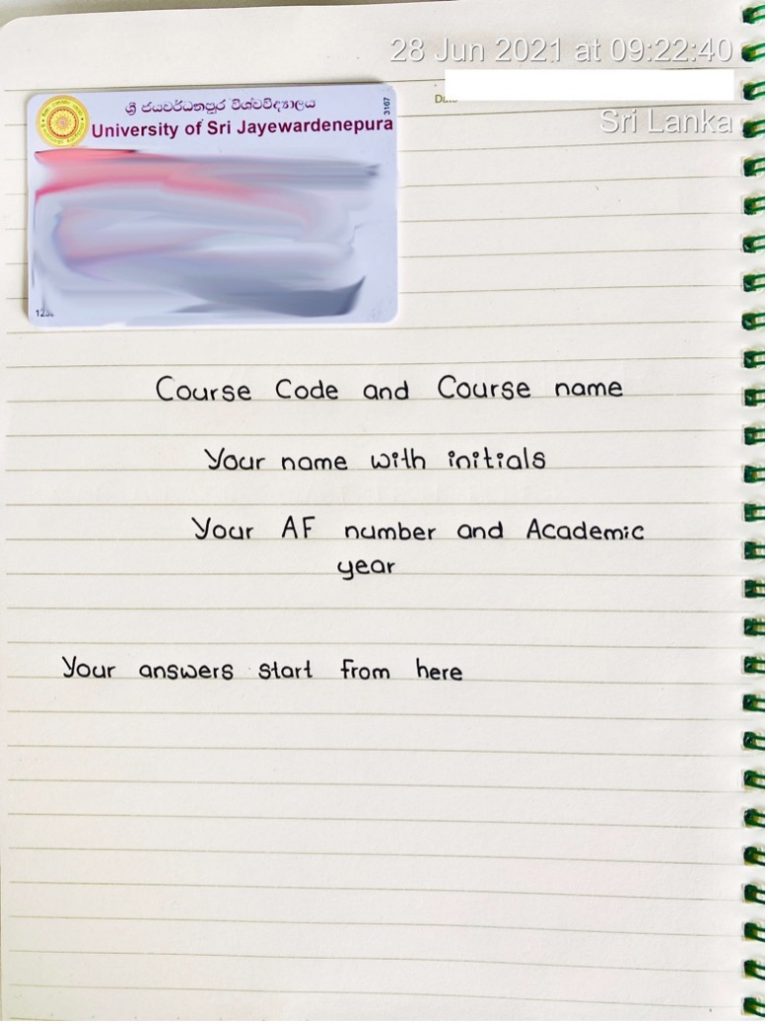 28 Jun 2021 at 09:22:40
Date
Sri Lanka
ශ්‍රී ජයවර්ධනපුර විශ්වවිද්‍යාලය
3167
University of Sri Jayewardenepura
Course Code and Course name
Your name with initials
Your AF number and Academic
year
Your answers start from here